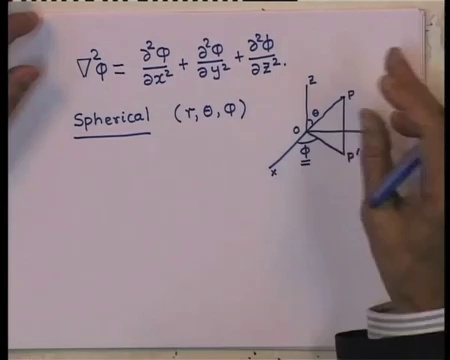 ∇²φ = ∂²φ/∂x² + ∂²φ/∂y² + ∂²φ/∂z².
Spherical (r, θ, φ)
z
P
θ
O
φ
P'
x